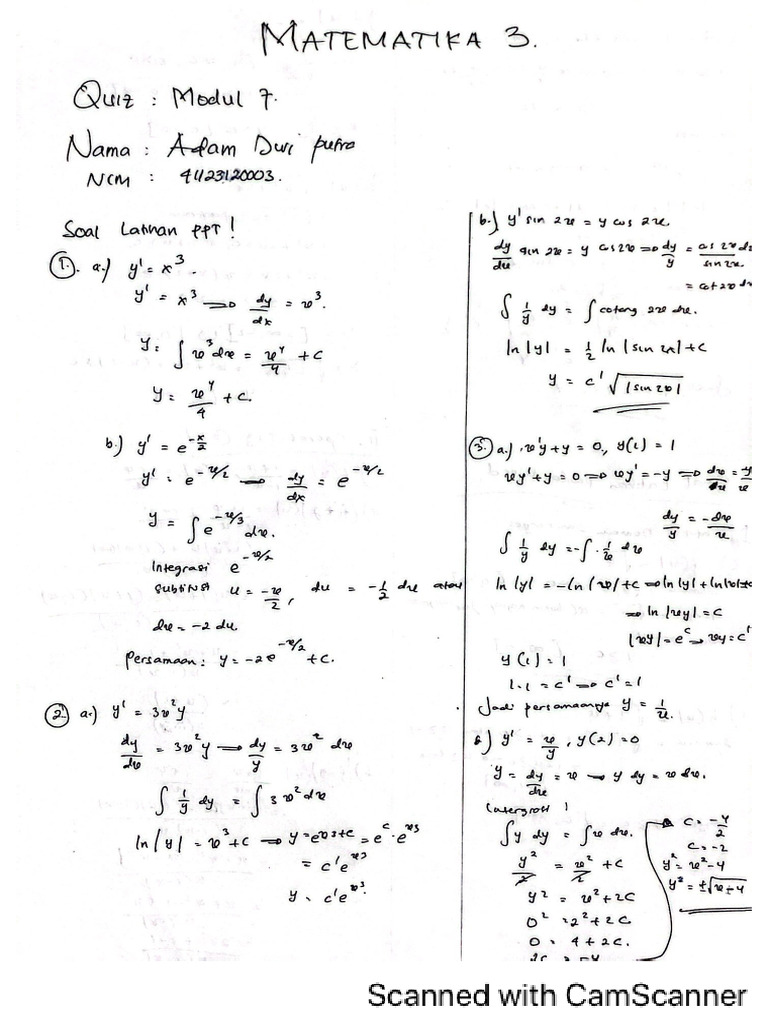 MATEMATIKA 3.
Quiz : Modul 7.
Nama : Adam Dwi putra
NIM : 41123120003.
Soal Latihan PPT !
1. a.) y' = x³.
y' = x³ → dy/dx = x³.
y = ∫ x³ dx = x⁴/4 + c
y = x⁴/4 + c.
b.) y' = e^(-x/2)
y' = e^(-x/2) → dy/dx = e^(-x/2)
y = ∫ e^(-x/3) dx.
Integrasi e^(-x/2)
u = -x/2, du = -1/2 dx atau
dx = -2 du
Persamaan : y = -2e^(-x/2) + c.
2. a.) y' = 3x²y
dy/dx = 3x²y → dy/y = 3x² dx
∫ 1/y dy = ∫ 3x² dx
ln |y| = x³ + c → y = e^(x3+c) = e^c · e^(x3)
= c'e^(x3)
y = c'e^(x3)
b.) y' sin 2x = y cos 2x
dy/dx sin 2x = y cos 2x → dy/y = cos 2x dx / sin 2x
= cot 2x dx
∫ 1/y dy = ∫ cotang 2x dx.
ln |y| = 1/2 ln |sin 2x| + c
y = c' √|sin 2x|
3. a.) x'y + y = 0, y(1) = 1
xy' + y = 0 → xy' = -y → dx/dx = y/x
dy/y = -dx/x
∫ 1/y dy = -∫ 1/x dx
ln |y| = -ln |x| + c → ln |y| + ln |x| = c
→ ln |xy| = c
|xy| = e^c → xy = c'
y(1) = 1
1.1 = c' → c' = 1
Jadi persamaannya y = 1/x.
b.) y' = x/y, y(2) = 0
y = dy/dx = x → y dy = x dx.
∫ y dy = ∫ x dx.
y²/2 = x²/2 + c
y² = x² + 2c
0² = 2² + 2c
0 = 4 + 2c.
2c = -4
c = -4/2
c = -2
y² = x² - 4
y² = ±√x-4
Scanned with CamScanner